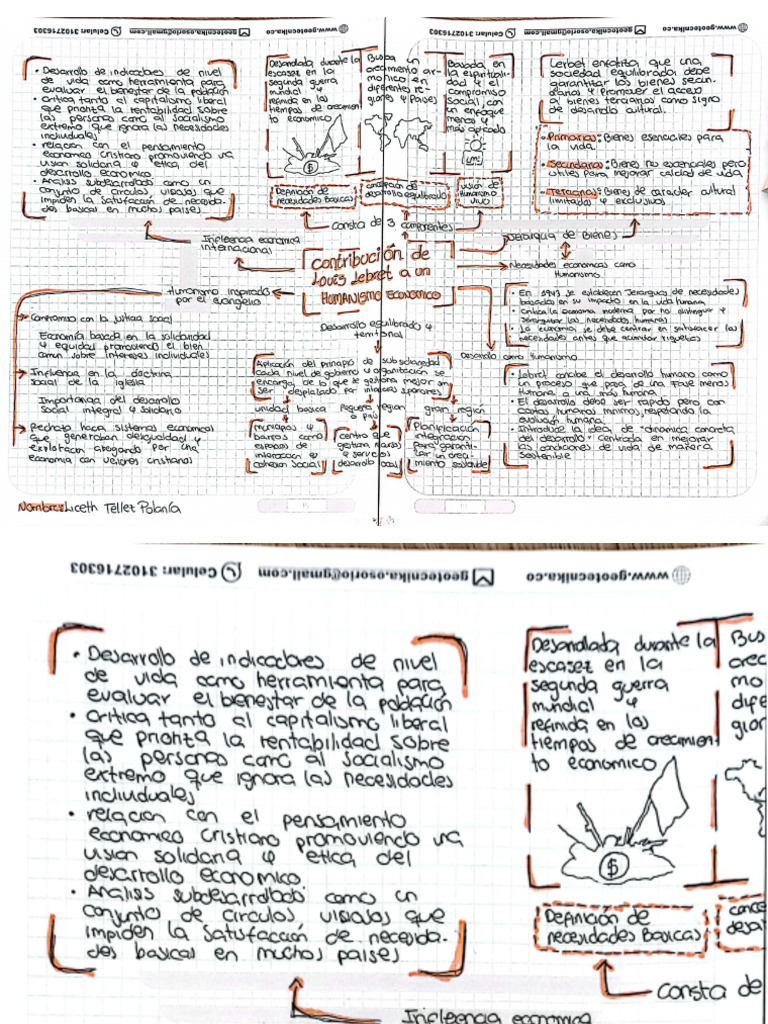 www.geotecnika.co
geotecnika.osorio@gmail.com
Celular: 3102716303
www.geotecnika.co
geotecnika.osorio@gmail.com
Celular: 3102716303
• Desarrollo de indicadores de nivel
de vida como herramienta para
evaluar el benestar de la población
• Critica tanto al capitalismo liberal
que priorita la rentabilidad sobre
las personas como al socialismo
extremo que ignora las necesidades
individuales
• relacion con el pensamiento
economico cristiano promoviendo una
vision solidaria y etica del
desarrollo economico
• Analisis subdesarrollado como un
conjunto de circulos viciosos que
impiden la satisfacción de necesida-
des basicas en muchos paises
Desarrollada durante la
escasez en la
segunda guerra
mundial y
refinida en los
tiempos de crecimien
to economico
Busca un
crecimiento ar-
monico en
diferentes re-
giones y paises
Basada en
la espirituali-
dad y el
compromiso
social, con
un enfoque
menos y
mas aplicado
Lerbet enfatiza que una
sociedad equilibrada debe
garantizar los bienes secun-
darios y promover el acceso
al bienes terciarios como signo
de desarrollo cultural.
• Primarios: Bienes esenciales para
la vida.
• Secundarios: Bienes no esenciales pero
utiles para mejorar calidad de vida
• Terciarios: Bienes de caracter cultural
limitados y exclusivos
Definición de
necesidades Basicas
concepcion de
desarrollo equilibrado
vision de
Humanismo
vivo
consta de 3 componentes
Influencia economica
internacional
Jerarquia de Bienes
contribución de
Louis Lebret a un
Humanismo Economico
Necesidades economicas como
Humanismo
Humanismo inspirado
por el evangelio
Compromiso con la justicia social
Economia basada en la solidaridad
y equidad promoviendo el bien
comun sobre intereses individuales
Influencia en la doctrina
social de la iglesia
Importancia del desarrollo
social integral y solidario
Rechazo hacia sistemas economicos
que generaban desigualdad y
explotacion abogando por una
economia con valores cristianos
Desarrollo equilibrado y
territorial
Aplicación del principio de subsidiaridad
cada nivel de gobierno u organitación se
encarga de lo que se gestiona mejor sin
ser desplazado por instancias superiores
unidad basica
Pequeña region
o pais
gran region
municipios y
barrios como
espacios de
interaccion y
cohesion social
centro que
gestiona
y servicios
desarrollo local
Planificación
integracion
para garanti-
zar un creci-
miento sostenible
• En 1943 se establecen Jerarquia de necesidades
basadas en su impacto en la vida humana
• Critica la economia moderna por no distinguir y
Jerarquizar las necesidades humanas
• La economia se debe centrar en satisfacer las
necesidades antes que acumular riquezas
Desarrollo como Humanismo
• Lebret concibe el desarrollo humano como
un proceso que pasa de una fase menos
Humana a una mas humana
• El desarrollo debe ser rapido pero con
costos humanos minimos, respetando la
evolución humana
• Introduce la idea de "dinamica concreta
del desarrollo" centrada en mejorar
las condiciones de vida de manera
Sostenible
Nombre: Liceth Tellez Polania
www.geotecnika.co
geotecnika.osorio@gmail.com
Celular: 3102716303
• Desarrollo de indicadores de nivel
de vida como herramienta para
evaluar el benestar de la población
• Critica tanto al capitalismo liberal
que priorita la rentabilidad sobre
las personas como al socialismo
extremo que ignora las necesidades
individuales
• relacion con el pensamiento
economico cristiano promoviendo una
vision solidaria y etica del
desarrollo economico
• Analisis subdesarrollado como un
conjunto de circulos viciosos que
impiden la satisfacción de necesida-
des basicas en muchos paises
Desarrollada durante la
escasez en la
segunda guerra
mundial y
refinida en los
tiempos de crecimien
to economico
Bus
crec
mo
dife
gior
$
Definición de
necesidades Basicas
conce
desar
consta de
Influencia economica